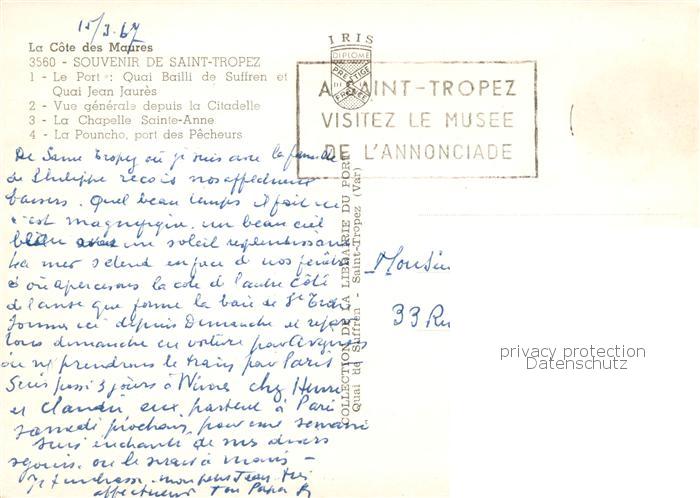 15/3.67
La Côte des Maures
3560 - SOUVENIR DE SAINT-TROPEZ
1 - Le Port : Quai Bailli de Suffren et
Quai Jean Jaurès
2 - Vue générale depuis la Citadelle
3 - La Chapelle Sainte-Anne
4 - La Pouncho, port des Pêcheurs
IRIS
DIPLOME
PRESTIGE
DE LA
FRANCE
A SAINT-TROPEZ
VISITEZ LE MUSEE
DE L'ANNONCIADE
De Saint Tropez où je suis avec la famille
de Philippe reçois nos affectueux
baisers. Quel beau temps il fait ici
c'est magnifique un beau ciel
bleu avec un soleil resplendissant
La mer s'étend en face de nos fenêtres
d'où apercevons la côte de l'autre côté
de l'anse que forme la baie de St Trop
Sommes ici depuis Dimanche et
tous dimanche en voiture pour
où reprendrons le train pour Paris
Suis passé 3 jours à chez Henri
et Claudie, eux partent à Paris
samedi prochain pour une semaine
Suis enchanté de mes divers
séjours, où le serait à moins -
Je t'embrasse mon petit Jean très
affectueux Ton Papa
COLLECTION DE LA LIBRAIRIE DU PORT
Quai de Suffren - Saint-Tropez (Var)
Monsieur
33 Rue
privacy protection
Datenschutz